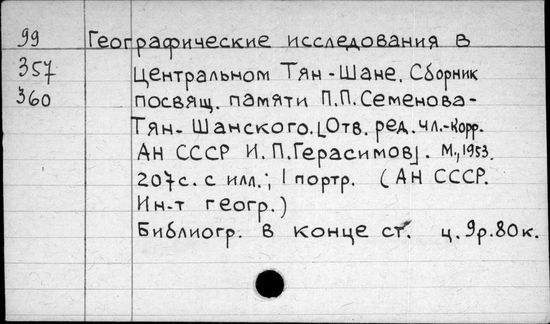 99 Географические исследования в
357 Центральном Тян-Шане. Сборник
360 посвящ. памяти П.П.Семенова-
Тян-Шанского. [Отв. ред. чл.-корр.
АН СССР И.П.Герасимов]. М., 1953.
207с. с илл.; 1 портр. (АН СССР.
Ин-т геогр.)
Библиогр. в конце ст. ц. 9р.80к.